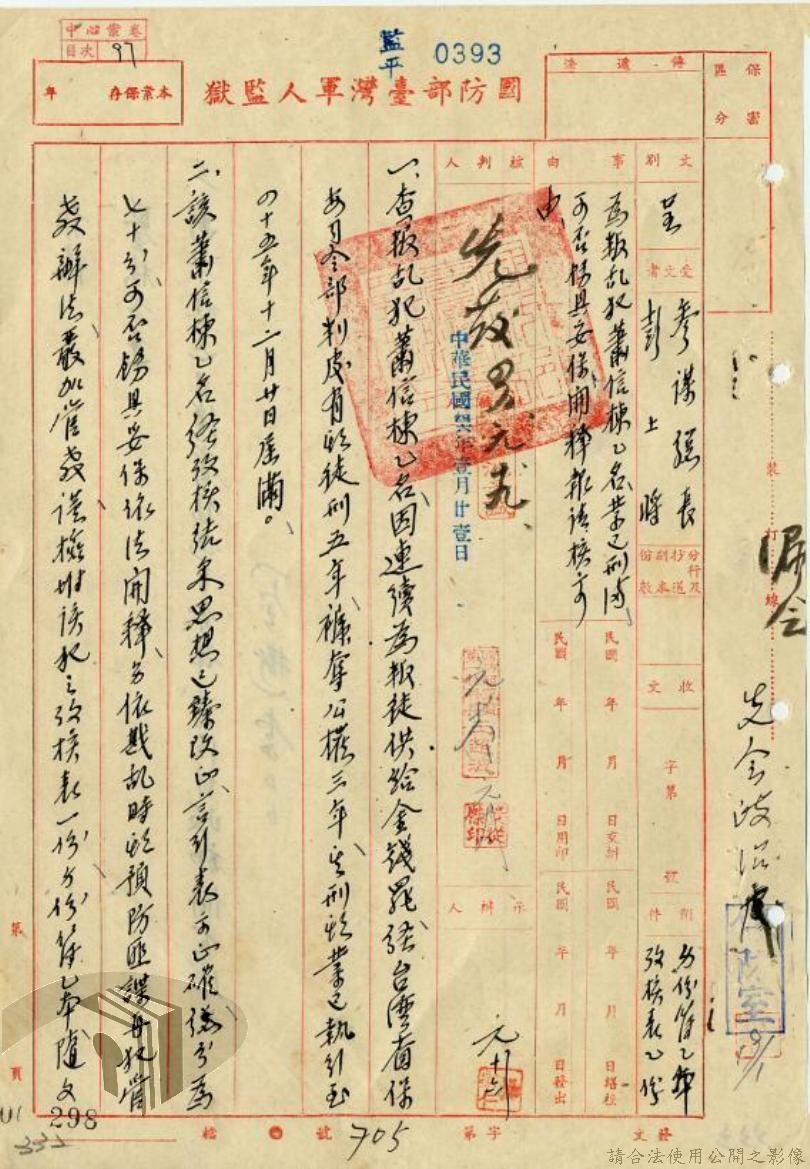 中心業卷
目次 97
監平 0393
國防部臺灣軍人監獄
本業保存 年
傳遞
保密區分
文別 呈
受文者 參謀總長彭 上將
事由
為叛乱犯蕭信棟乙名業已刑滿
可否錫具妥保開釋報請核示
由
核判人
先發 男元九
中華民國四六年壹月廿壹日
分行及抄送副本份數
收文 字第 號
附件 另份簿乙本
攷核表乙份
民國 年 月 日交辦
民國 年 月 日用印
民國 年 月 日繕校
民國 年 月 日發出
示辦人
一、查叛乱犯蕭信棟乙名因連續為叛徒供給金錢罪經台灣省保
安司令部判處有期徒刑五年褫奪公權三年其刑期業已執行至
四十五年十二月廿日屆滿。
二、該蕭信棟乙名經攷核結果思想已臻改正言行表示正確總分為
七十分可否錫具妥保依法開釋另依戡乱時期預防匪諜再犯管
教辦法嚴加管教謹檢附該犯之攷核表一份另份簿乙本隨文
裝 訂 線
先会政治
室
第 頁
298
332
發文 字第 705 號
檔
請合法使用公開之影像